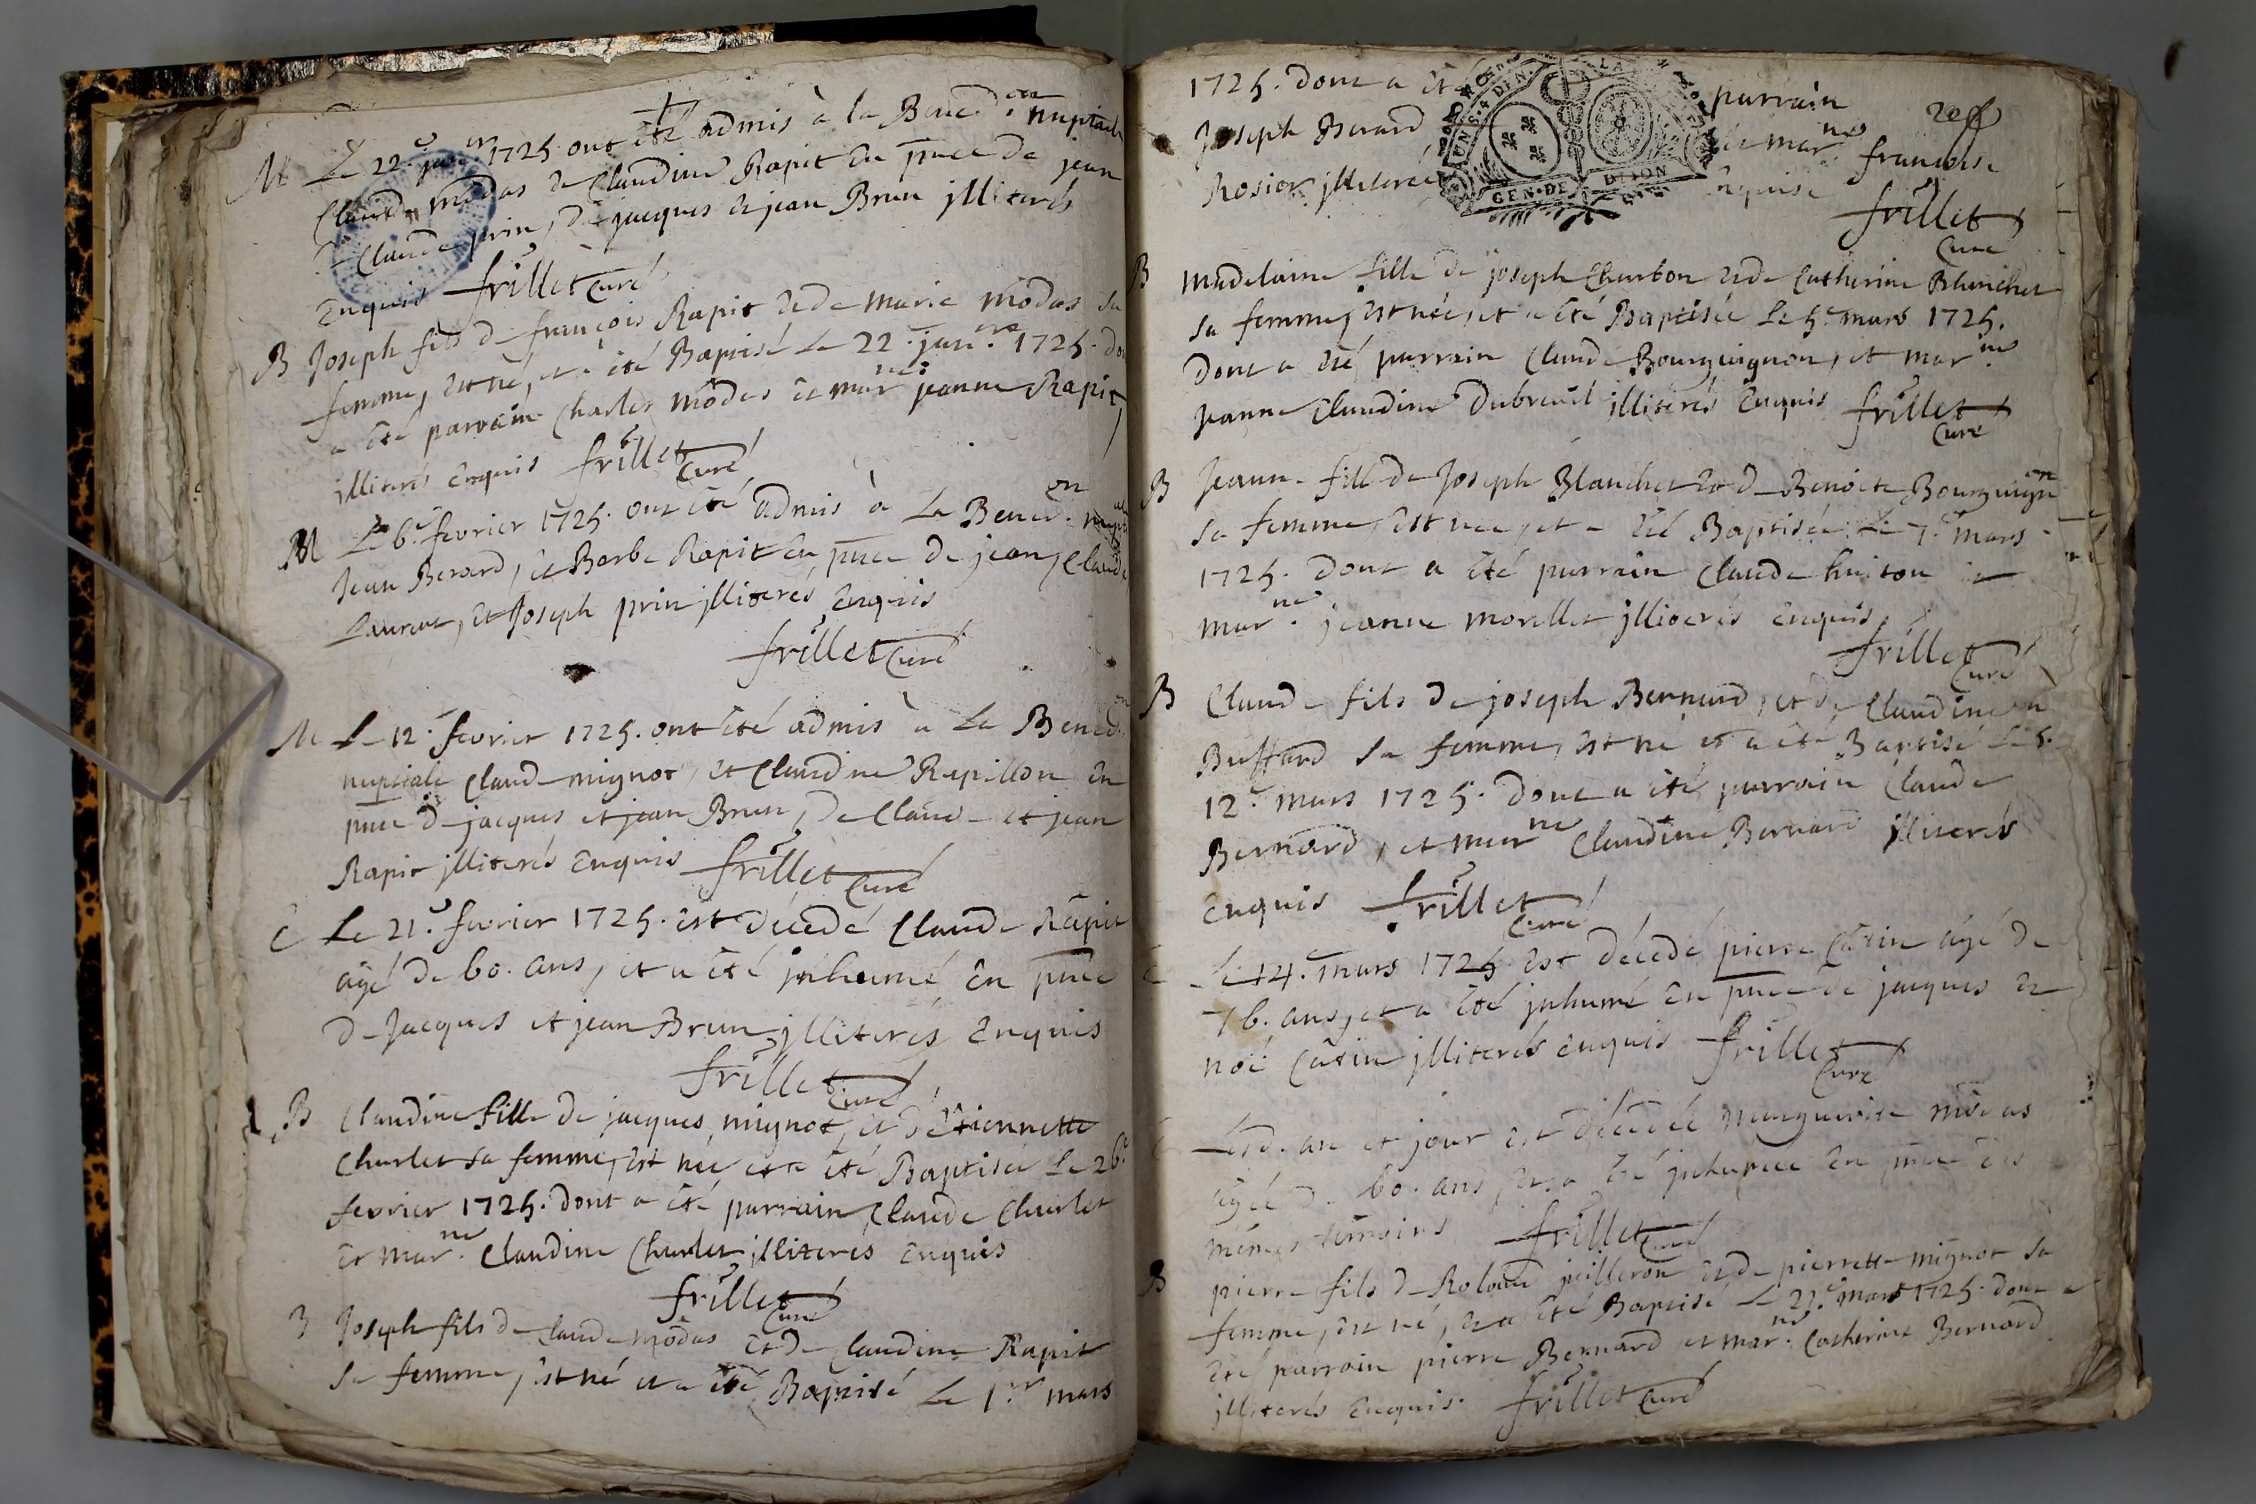 M Le 22.e janer 1725. ont été admis à la Bened.on nuptiale
Claude modas et Claudine Rapit En pnce de jean
et Claude prin, de jacques et jean Brun jlliterés
enquis frillet Curé
B Joseph fils de françois Rapit et de marie modas sa
femme, est né, et a été Baptisé Le 22.e janer. 1725. dont
a été parrain Charles modas et marne jeanne Rapit
jlliterés enquis frillet Curé
M Le 6.e fevrier 1725. ont été admis à La Bened.on nupt.ale
Jean Berard, et Barbe Rapit En pnce de jean, Claude
Laurent, et Joseph prin jlliterés enquis
frillet Curé
M Le 12.e fevrier 1725. ont été admis à La Bened.on
nuptiale Claude mignot, et Claudine Rapillon En
pnce de jacques et jean Brun, de Claude et jean
Rapit jlliterés enquis frillet Curé
C Le 21.e fevrier 1725. est décedé Claude Rapit
âgé de 60. ans, et a été jnhumé En pnce
de Jacques et jean Brun jlliterés Enquis
frillet Curé
B Claudine fille de jacques mignot, et d'Etiennette
Charlet sa femme, est née et a été Baptisée Le 26.e
fevrier 1725. dont a été parrain Claude Charlet
et mar.ne Claudine Charlet jlliterés enquis
frillet Curé
B Joseph fils de Claude modas et de Claudine Rapit
sa femme, est né et a été Baptisé Le 1.er mars
1725. dont a été parrain
Joseph Berard et mar.ne françoise
Rosier jlliterés enquis
frillet Curé
UN S. 4 DEN. LA
GEN. DE DIJON
B Madelaine fille de joseph Charton et de Catherine Blanchet
sa femme, est née, et a été Baptisée Le 5.e mars 1725.
Dont a été parrain Claude Bourguignon, et mar.ne
Jeanne Claudine Dubreuil illiterés Enquis frillet Curé
B Jeanne fille de Joseph Blanchet et de Benoite Bourguignon
sa femme, est née, et a été Baptisée Le 7.e mars
1725. Dont a été parrain Claude huiton et
mar.ne jeanne morellet jlliterés enquis
frillet Curé
B Claude fils de joseph Bernard, et de Claudine
Buffard sa femme, est né et a été Baptisé Le
12.e mars 1725. dont a été parrain Claude
Bernard, et mar.ne Claudine Bernard jlliterés
Enquis frillet Curé
C Le 14.e mars 1725 est décedé pierre Catin âgé de
76. ans, et a été jnhumé En pnce de jacques et
noë Catin jlliterés enquis frillet Curé
C Lesd. an et jour est décedée marguerite modas
âgée de 60. ans, et a été jnhumée En pnce des
mêmes temoins frillet Curé
B pierre fils de Roland juilleron et de pierrette mignot sa
femme, est né, et a été Baptisé Le 22.e mars 1725. dont a
été parrain pierre Bernard et mar.ne Catherine Bernard
jlliterés enquis. frillet Curé